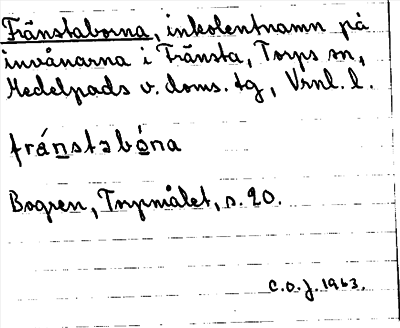 Fränstaborna, inkolentnamn på
invånarna i Fränsta, Torps sn,
Medelpads v. doms. tg, Vrnl. l.
fránstəbóna
Bogren, Torpmålet, s. 20.
C.O.J. 1963.